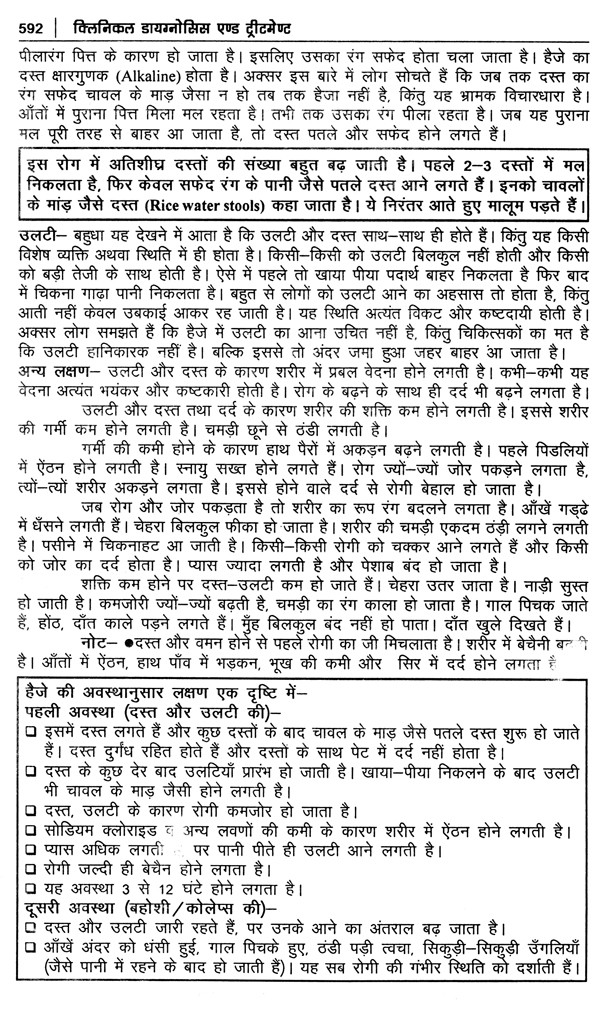 592 | क्लिनिकल डायग्नोसिस एण्ड ट्रीटमेण्ट
पीलारंग पित्त के कारण हो जाता है। इसलिए उसका रंग सफेद होता चला जाता है। हैजे का
दस्त क्षारगुणक (Alkaline) होता है। अक्सर इस बारे में लोग सोचते हैं कि जब तक दस्त का
रंग सफेद चावल के माड़ जैसा न हो तब तक हैजा नहीं है, किंतु यह भ्रामक विचारधारा है।
आँतों में पुराना पित्त मिला मल रहता है। तभी तक उसका रंग पीला रहता है। जब यह पुराना
मल पूरी तरह से बाहर आ जाता है, तो दस्त पतले और सफेद होने लगते हैं।
इस रोग में अतिशीघ्र दस्तों की संख्या बहुत बढ़ जाती है। पहले 2–3 दस्तों में मल
निकलता है, फिर केवल सफेद रंग के पानी जैसे पतले दस्त आने लगते हैं। इनको चावलों
के मांड़ जैसे दस्त (Rice water stools) कहा जाता है। ये निरंतर आते हुए मालूम पड़ते हैं।
उलटी– बहुधा यह देखने में आता है कि उलटी और दस्त साथ–साथ ही होते हैं। किंतु यह किसी
विशेष व्यक्ति अथवा स्थिति में ही होता है। किसी–किसी को उलटी बिलकुल नहीं होती और किसी
को बड़ी तेजी के साथ होती है। ऐसे में पहले तो खाया पीया पदार्थ बाहर निकलता है फिर बाद
में चिकना गाढ़ा पानी निकलता है। बहुत से लोगों को उलटी आने का अहसास तो होता है, किंतु
आती नहीं केवल उबकाई आकर रह जाती है। यह स्थिति अत्यंत विकट और कष्टदायी होती है।
अक्सर लोग समझते हैं कि हैजे में उलटी का आना उचित नहीं है, किंतु चिकित्सकों का मत है
कि उलटी हानिकारक नहीं है। बल्कि इससे तो अंदर जमा हुआ जहर बाहर आ जाता है।
अन्य लक्षण– उलटी और दस्त के कारण शरीर में प्रबल वेदना होने लगती है। कभी–कभी यह
वेदना अत्यंत भयंकर और कष्टकारी होती है। रोग के बढ़ने के साथ ही दर्द भी बढ़ने लगता है।
उलटी और दस्त तथा दर्द के कारण शरीर की शक्ति कम होने लगती है। इससे शरीर
की गर्मी कम होने लगती है। चमड़ी छूने से ठंडी लगती है।
गर्मी की कमी होने के कारण हाथ पैरों में अकड़न बढ़ने लगती है। पहले पिडलियों
में ऐंठन होने लगती है। स्नायु सख्त होने लगते हैं। रोग ज्यों–ज्यों जोर पकड़ने लगता है,
त्यों–त्यों शरीर अकड़ने लगता है। इससे होने वाले दर्द से रोगी बेहाल हो जाता है।
जब रोग और जोर पकड़ता है तो शरीर का रूप रंग बदलने लगता है। आँखें गड्ढे
में धँसने लगती हैं। चेहरा बिलकुल फीका हो जाता है। शरीर की चमड़ी एकदम ठंड़ी लगने लगती
है। पसीने में चिकनाहट आ जाती है। किसी–किसी रोगी को चक्कर आने लगते हैं और किसी
को जोर का दर्द होता है। प्यास ज्यादा लगती है और पेशाब बंद हो जाता है।
शक्ति कम होने पर दस्त–उलटी कम हो जाते हैं। चेहरा उतर जाता है। नाड़ी सुस्त
हो जाती है। कमजोरी ज्यों–ज्यों बढ़ती है, चमड़ी का रंग काला हो जाता है। गाल पिचक जाते
हैं, होंठ, दाँत काले पड़ने लगते हैं। मुँह बिलकुल बंद नहीं हो पाता। दाँत खुले दिखते हैं।
नोट– ●दस्त और वमन होने से पहले रोगी का जी मिचलाता है। शरीर में बेचैनी
है। आँतों में ऐंठन, हाथ पाँव में भड़कन, भूख की कमी और सिर में दर्द होने लगता है
हैजे की अवस्थानुसार लक्षण एक दृष्टि में–
पहली अवस्था (दस्त और उलटी की)–
❑ इसमें दस्त लगते हैं और कुछ दस्तों के बाद चावल के माड़ जैसे पतले दस्त शुरू हो जाते
हैं। दस्त दुर्गंध रहित होते हैं और दस्तों के साथ पेट में दर्द नहीं होता है।
❑ दस्त के कुछ देर बाद उलटियाँ प्रारंभ हो जाती है। खाया–पीया निकलने के बाद उलटी
भी चावल के माड़ जैसी होने लगती है।
❑ दस्त, उलटी के कारण रोगी कमजोर हो जाता है।
❑ सोडियम क्लोराइड व अन्य लवणों की कमी के कारण शरीर में ऐंठन होने लगती है।
❑ प्यास अधिक लगती पर पानी पीते ही उलटी आने लगती है।
❑ रोगी जल्दी ही बेचैन होने लगता है।
❑ यह अवस्था 3 से 12 घंटे होने लगता है।
दूसरी अवस्था (बहोशी/कोलेप्स की)–
❑ दस्त और उलटी जारी रहते हैं, पर उनके आने का अंतराल बढ़ जाता है।
❑ आँखें अंदर को धंसी हुई, गाल पिचके हुए, ठंडी पड़ी त्वचा, सिकुड़ी–सिकुड़ी उँगलियाँ
(जैसे पानी में रहने के बाद हो जाती हैं)। यह सब रोगी की गंभीर स्थिति को दर्शाती हैं।